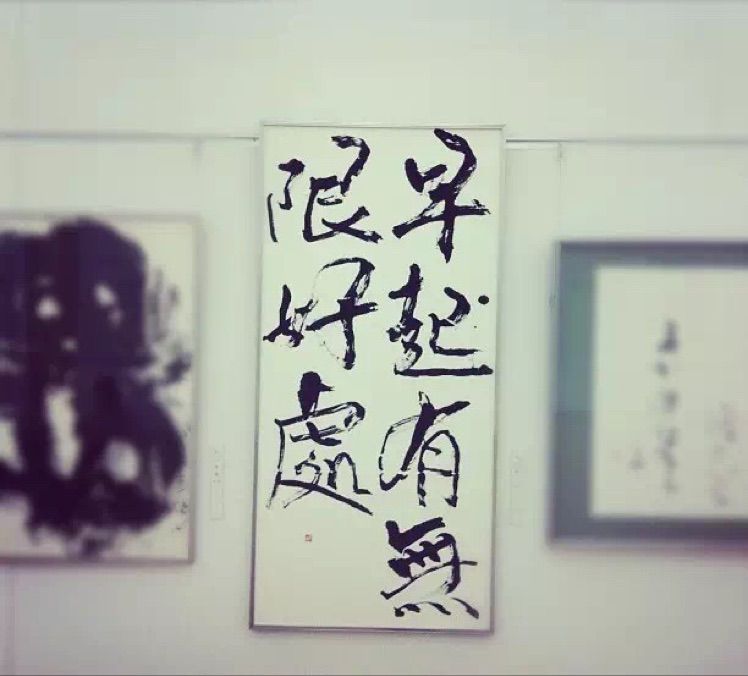 早起有無
限好處